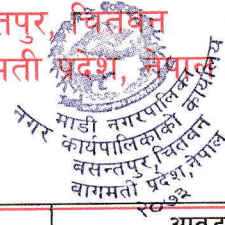 तपुर, चितवन
मती प्रदेश, नेपाल
माडी नगरपालिका
नगर कार्यपालिकाको कार्यालय
बसन्तपुर, चितवन
बागमती प्रदेश, नेपाल
२०७३